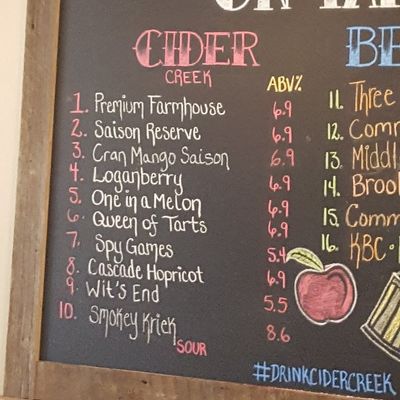 ON TAP
CIDER
CREEK
BE
ABV%
1. Premium Farmhouse 6.9
2. Saison Reserve 6.9
3. Cran Mango Saison 6.9
4. Loganberry 6.9
5. One in a Melon 6.9
6. Queen of Tarts 6.9
7. Spy Games 5.4
8. Cascade Hopricot 6.9
9. Wit's End 5.5
10. Smokey Kriek 8.6
SOUR
11. Three
12. Comm
13. Middl
14. Brook
15. Comm
16. KBC
#DRINKCIDERCREEK